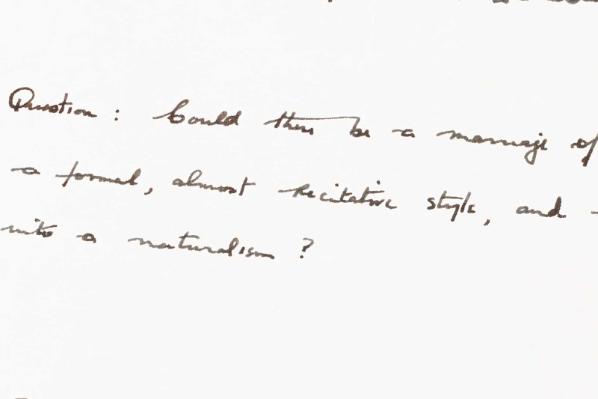 Question : Could there be a marriage of
a formal, almost recitative style, and
into a naturalism ?